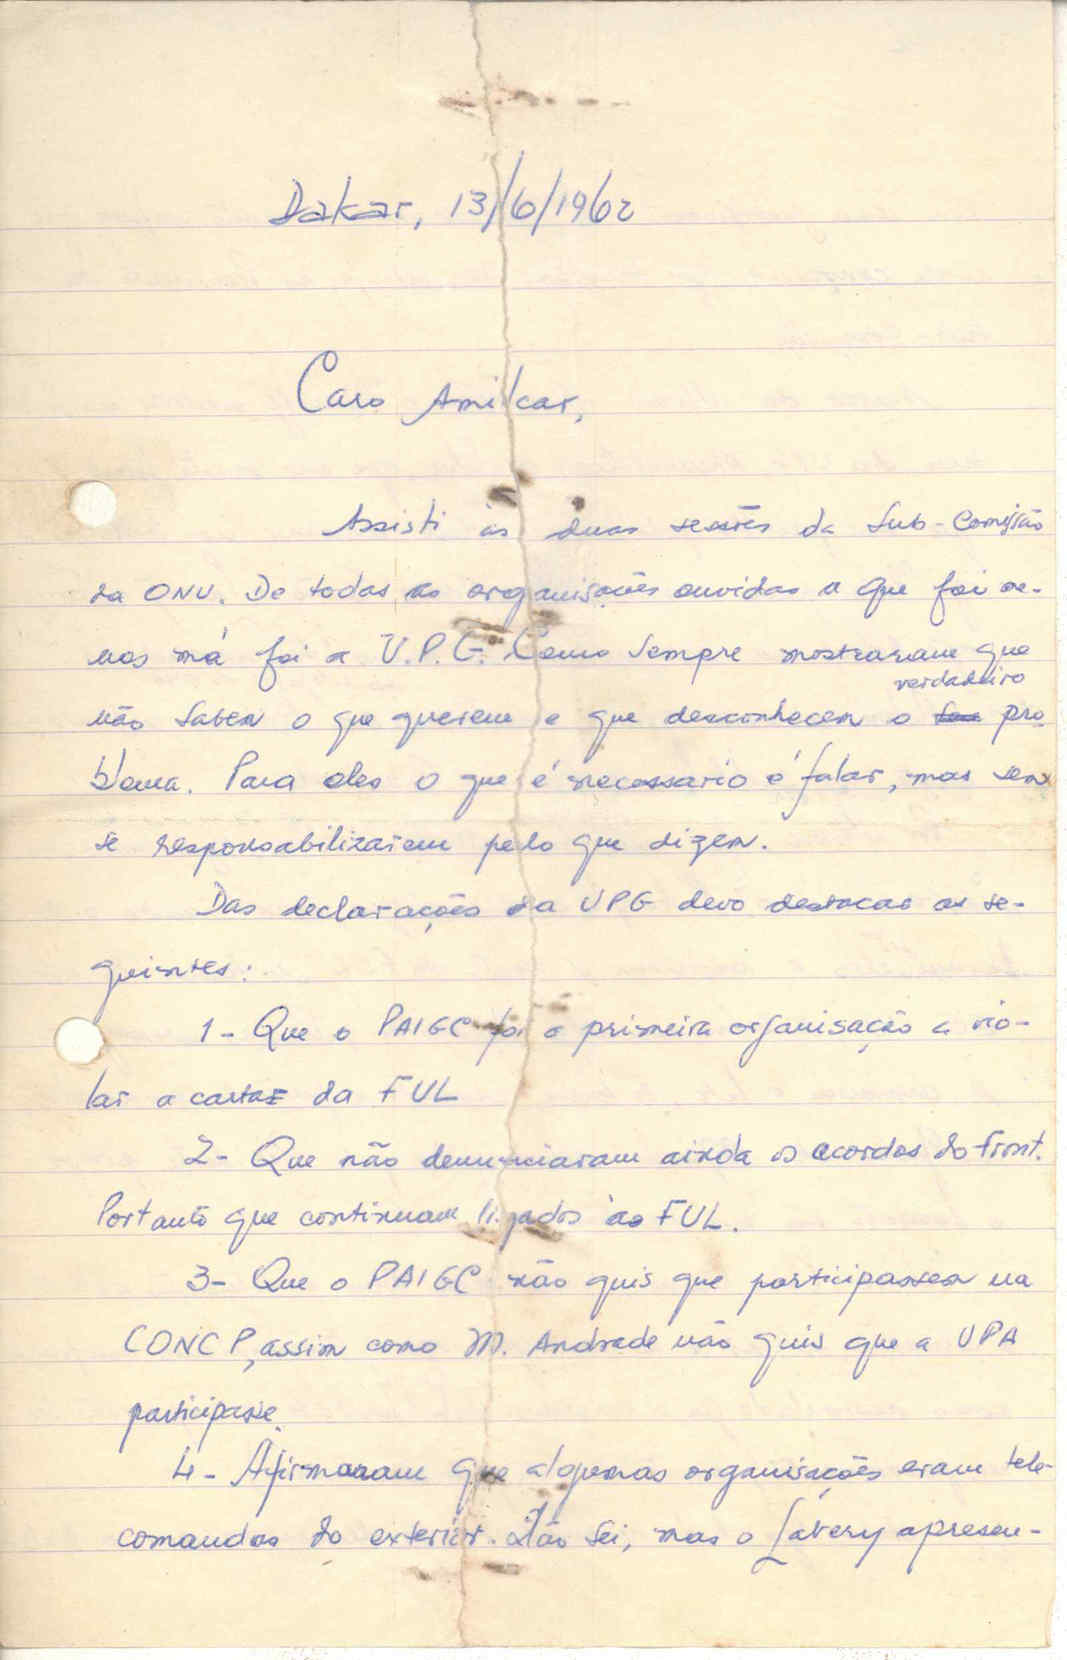 Dakar, 13/6/1962
Caro Amilcar,
Assisti às duas sessões da Sub-Comissão
da ONU. De todas as organisações ouvidas a que foi me-
nos má foi a U.P.G. Como sempre mostraram que
não sabem o que querem e que desconhecem o verdadeiro pro
blema. Para eles o que é necessario é falar, mas sem
se responsabilizarem pelo que dizem.
Das declarações da UPG devo destacar as se-
guintes:
1- Que o PAIGC foi a primeira organisação a vio-
lar a carta da FUL
2- Que não denunciaram ainda os acordos do Front.
Portanto que continuam ligados à FUL.
3- Que o PAIGC não quis que participassem na
CONCP, assim como M. Andrade não quis que a UPA
participasse.
4- Afirmaram que algumas organisações eram tele-
comandas do exterior. Não sei, mas o Labery apresen-